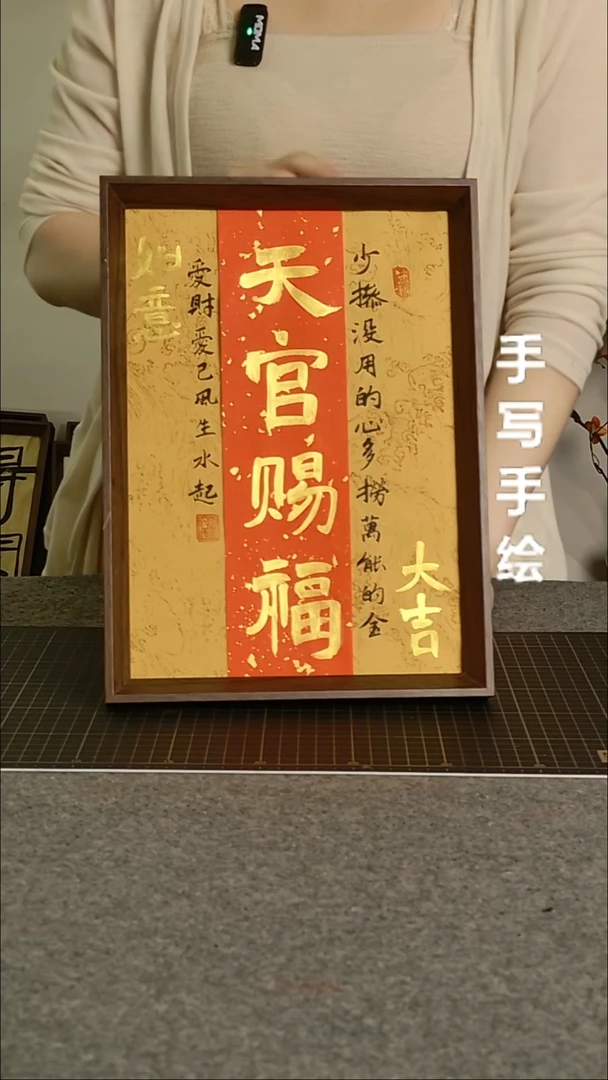 MOMA
大吉
少操没用的心多捞萬能的金
天官赐福
愛財愛己风生水起
如意
手写手绘